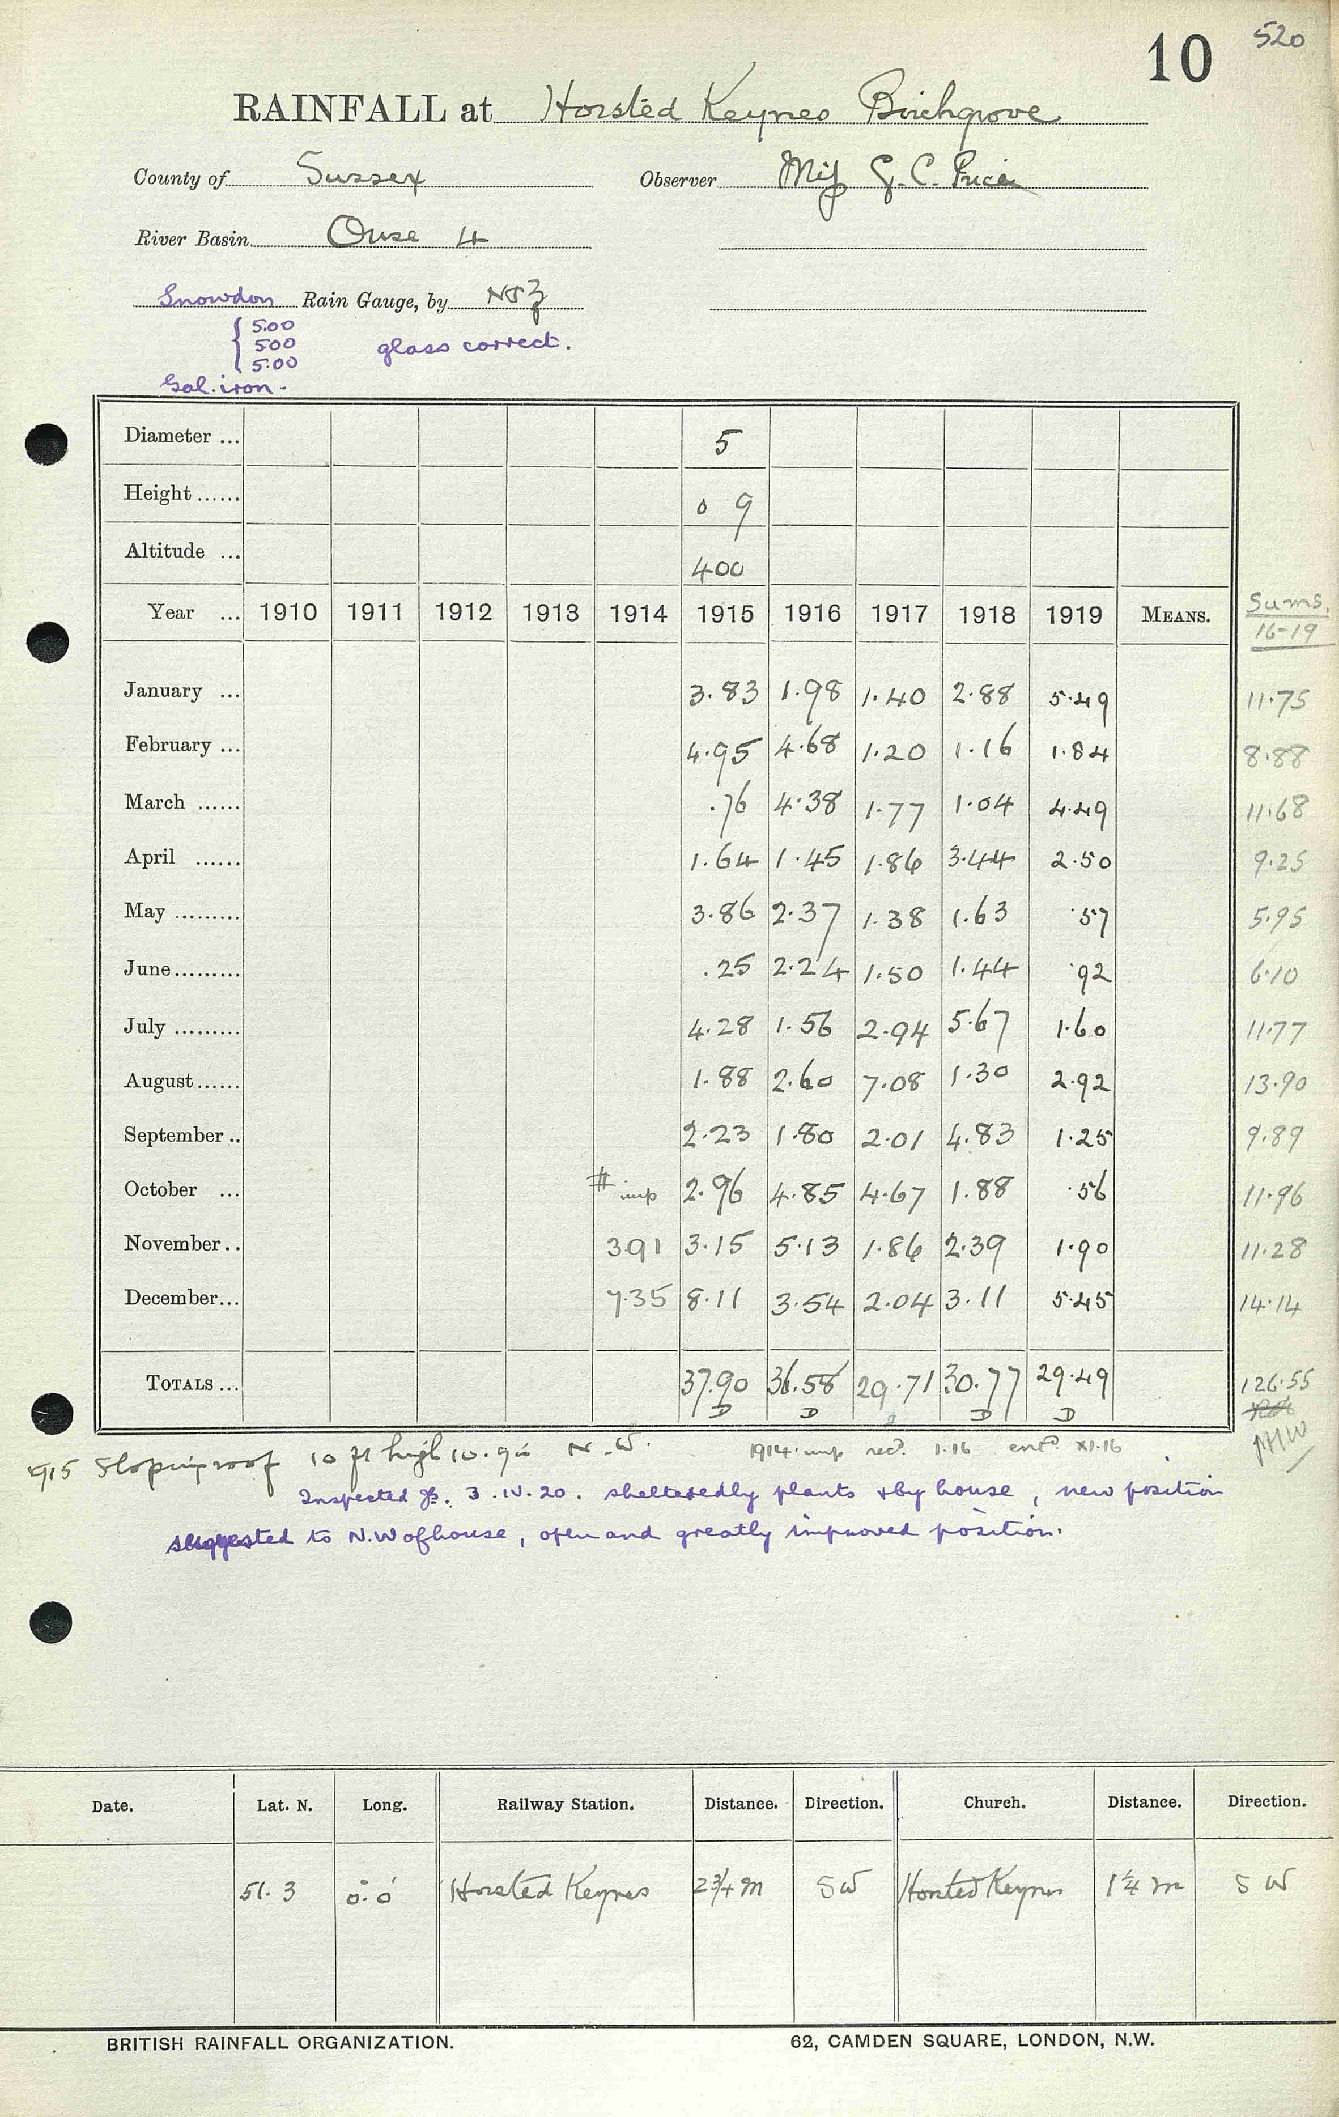 520
10
RAINFALL at Horsted Keynes Birchgrove
County of Sussex Observer Miss G. C. Price
River Basin Ouse 4
Snowdon Rain Gauge, by N & Z
5.00
5.00 glass correct.
5.00
Gal. iron.
Diameter ... 5
Height ...... 0 9
Altitude ... 400
Year ... 1910 1911 1912 1913 1914 1915 1916 1917 1918 1919 MEANS. Sums. 16-19
January ... 3.83 1.98 1.40 2.88 5.49 11.75
February ... 4.95 4.68 1.20 1.16 1.84 8.88
March ...... .76 4.38 1.77 1.04 4.49 11.68
April ...... 1.64 1.45 1.86 3.44 2.50 9.25
May ......... 3.86 2.37 1.38 1.63 .57 5.95
June......... .25 2.24 1.50 1.44 .92 6.10
July ......... 4.28 1.56 2.94 5.67 1.60 11.77
August...... 1.88 2.60 7.08 1.30 2.92 13.90
September .. 2.23 1.80 2.01 4.83 1.25 9.89
October ... # imp 2.96 4.85 4.67 1.88 .56 11.96
November .. 3.91 3.15 5.13 1.86 2.39 1.90 11.28
December... 7.35 8.11 3.54 2.04 3.11 5.45 14.14
TOTALS ... 37.90 36.58 29.71 30.77 29.49 126.55
D D D D
1915 Sloping roof 10 ft high 10.9 in N.W. 1914 imp rec'd. 1.16 ent'd. XI.16
Inspected 3.IV.20. shelteredly plants & by house, new position
suggested to N.W of house, open and greatly improved position.
Date. Lat. N. Long. Railway Station. Distance. Direction. Church. Distance. Direction.
51. 3 0°. 0' Horsted Keynes 2¾ m SW Horsted Keynes 1¼ m SW
BRITISH RAINFALL ORGANIZATION. 62, CAMDEN SQUARE, LONDON, N.W.